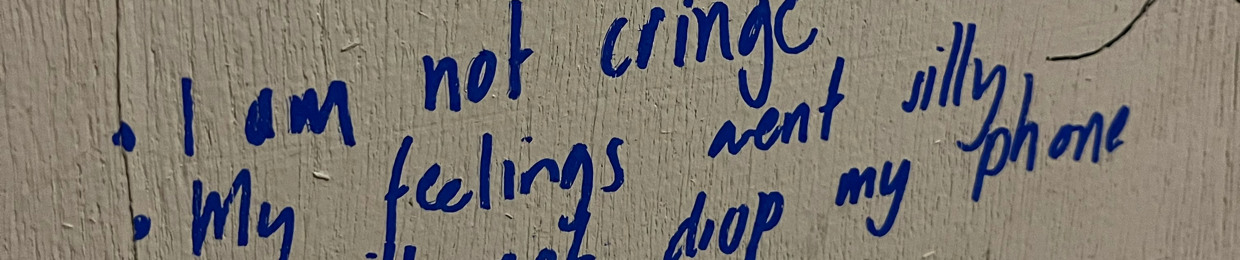 • I am not cringe
• My feelings arent silly
drop my phone